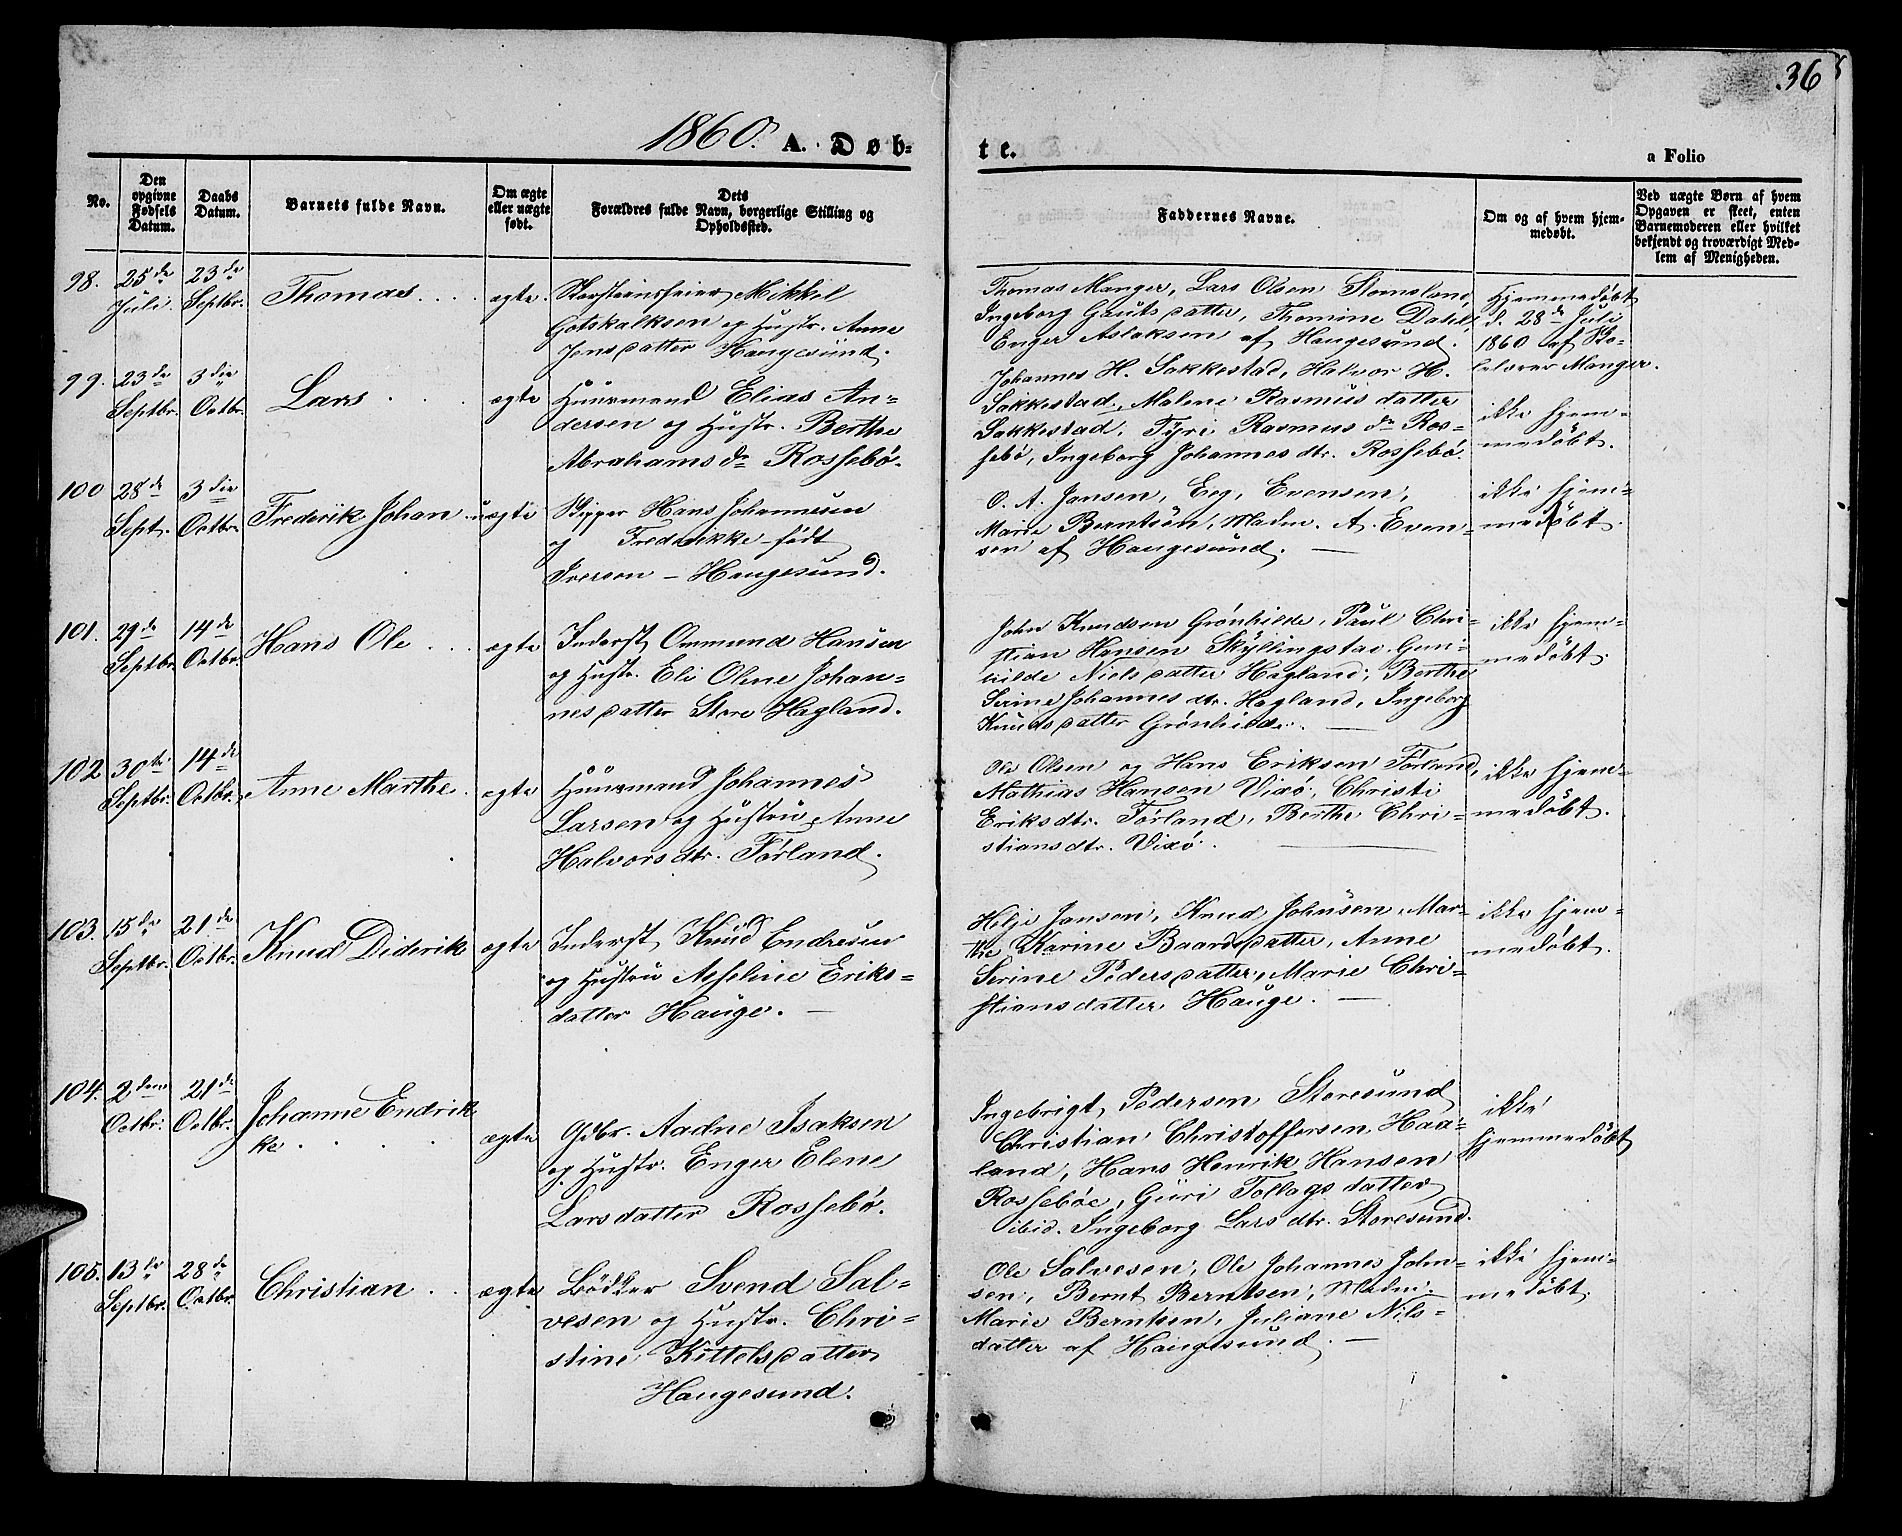 36
1860. A. Døb-
te.
a Folio
No.
Den opgivne Fødsels Datum.
Daabs Datum.
Barnets fulde Navn.
Om ægte eller uægte født.
Dets Forældres fulde Navn, borgerlige Stilling og Opholdssted.
Faddernes Navne.
Om og af hvem hjem-
medøbt.
Ved uægte Børn af hvem
Opgaven er skeet, enten
Barnemoderen eller hvilket
bekjendt og troværdigt Med-
lem af Menigheden.
98.
25de
Juli.
23de
Septbr.
Thomas
ægte
Skorsteensfeier Mikkil
Gotskalksen og Hustr. Anne
Jensdatter Haugesund.
Thomas Manger, Lars Olsen Stomsland,
Ingeborg Gautsdatter, Thomine
Enger Aslaksen af Haugesund.
Hjemmedøbt
d. 28de Juli
1860 af Sko-
lelærer Manger.
99.
23de
Septbr.
3die
Octbr.
Lars
ægte
Huusmand Elias An-
dersen og Hustr. Berthe
Abrahamsdr Rossebø.
Johannes H. Sakkestad, Halvor H.
Sakkestad, Malene Rasmusdatter
Sakkestad, Tyri Rasmusdr Ros-
sebø, Ingeborg Johannesdtr. Rossebø.
ikke hjem-
medøbt.
100
28de
Sept.
3die
Octbr.
Frederik Johan
uægte
Skipper Hans Johannesen
og Frederikke født
Iversen - Haugesund.
O. A. Jansen, Eeg, Evensen,
Marie Berntsen, Madm. A. Even-
sen af Haugesund. -
ikke hjem-
medøbt.
101.
29de
Septbr.
14de
Octbr.
Hans Ole
ægte
Inderst Ommund Hansen
og Hustr. Eli Oline Johan-
nesdatter Store Hagland.
John Knudsen Grønhilde, Paul Chri-
stian Hansen Skyllingstad, Gun-
hilde Nielsdatter Hagland, Berthe
Serine Johannesdtr. Hagland, Ingeborg
Knudsdatter Grønhilde. -
ikke hjem-
medøbt.
102
30te
Septbr.
14de
Octbr.
Anne Marthe
ægte
Huusmand Johannes
Larsen og Hustru Anne
Halvorsdtr. Førland.
Ole Olsen og Hans Eriksen Førland,
Mathias Hansen Vixø, Christi
Eriksdtr. Førland, Berthe Chri-
stiansdtr. Vixø.
ikke hjem-
medøbt.
103.
15de
Septbr.
21de
Octbr.
Knud Diderik
ægte
Inderst Knud Endresen
og Hustru Asseline Eriks-
datter Hauge. -
Helje Jansen, Knud Johnsen, Mar-
the Karine Baardsdatter, Anne
Serine Pedersdatter, Marie Chri-
stiansdatter Hauge. -
ikke hjem-
medøbt.
104.
2den
Octbr.
21de
Octbr.
Johanne Endrik
ke
ægte
Gdbr. Aadne Isaksen
og Hustr. Enger Elene
Larsdatter Rossebø.
Ingebrigt Pedersen Storesund
Christian Christoffersen Haa-
land, Hans Henrik Hansen
Rossebøe, Guri Tollagsdatter
ibid. Ingeborg Larsdtr. Storesund.
ikke
hjemmedøbt
105.
13de
Septbr.
28de
Octbr.
Christian
ægte
Bødker Svend Sal-
vesen og Hustr. Chri-
stine Kittelsdatter
Haugesund.
Ole Salvesen, Ole Johannes John-
sen, Bernt Berntsen, Madm.
Marie Berntsen, Juliane Nils-
datter af Haugesund. -
ikke hjem-
medøbt.